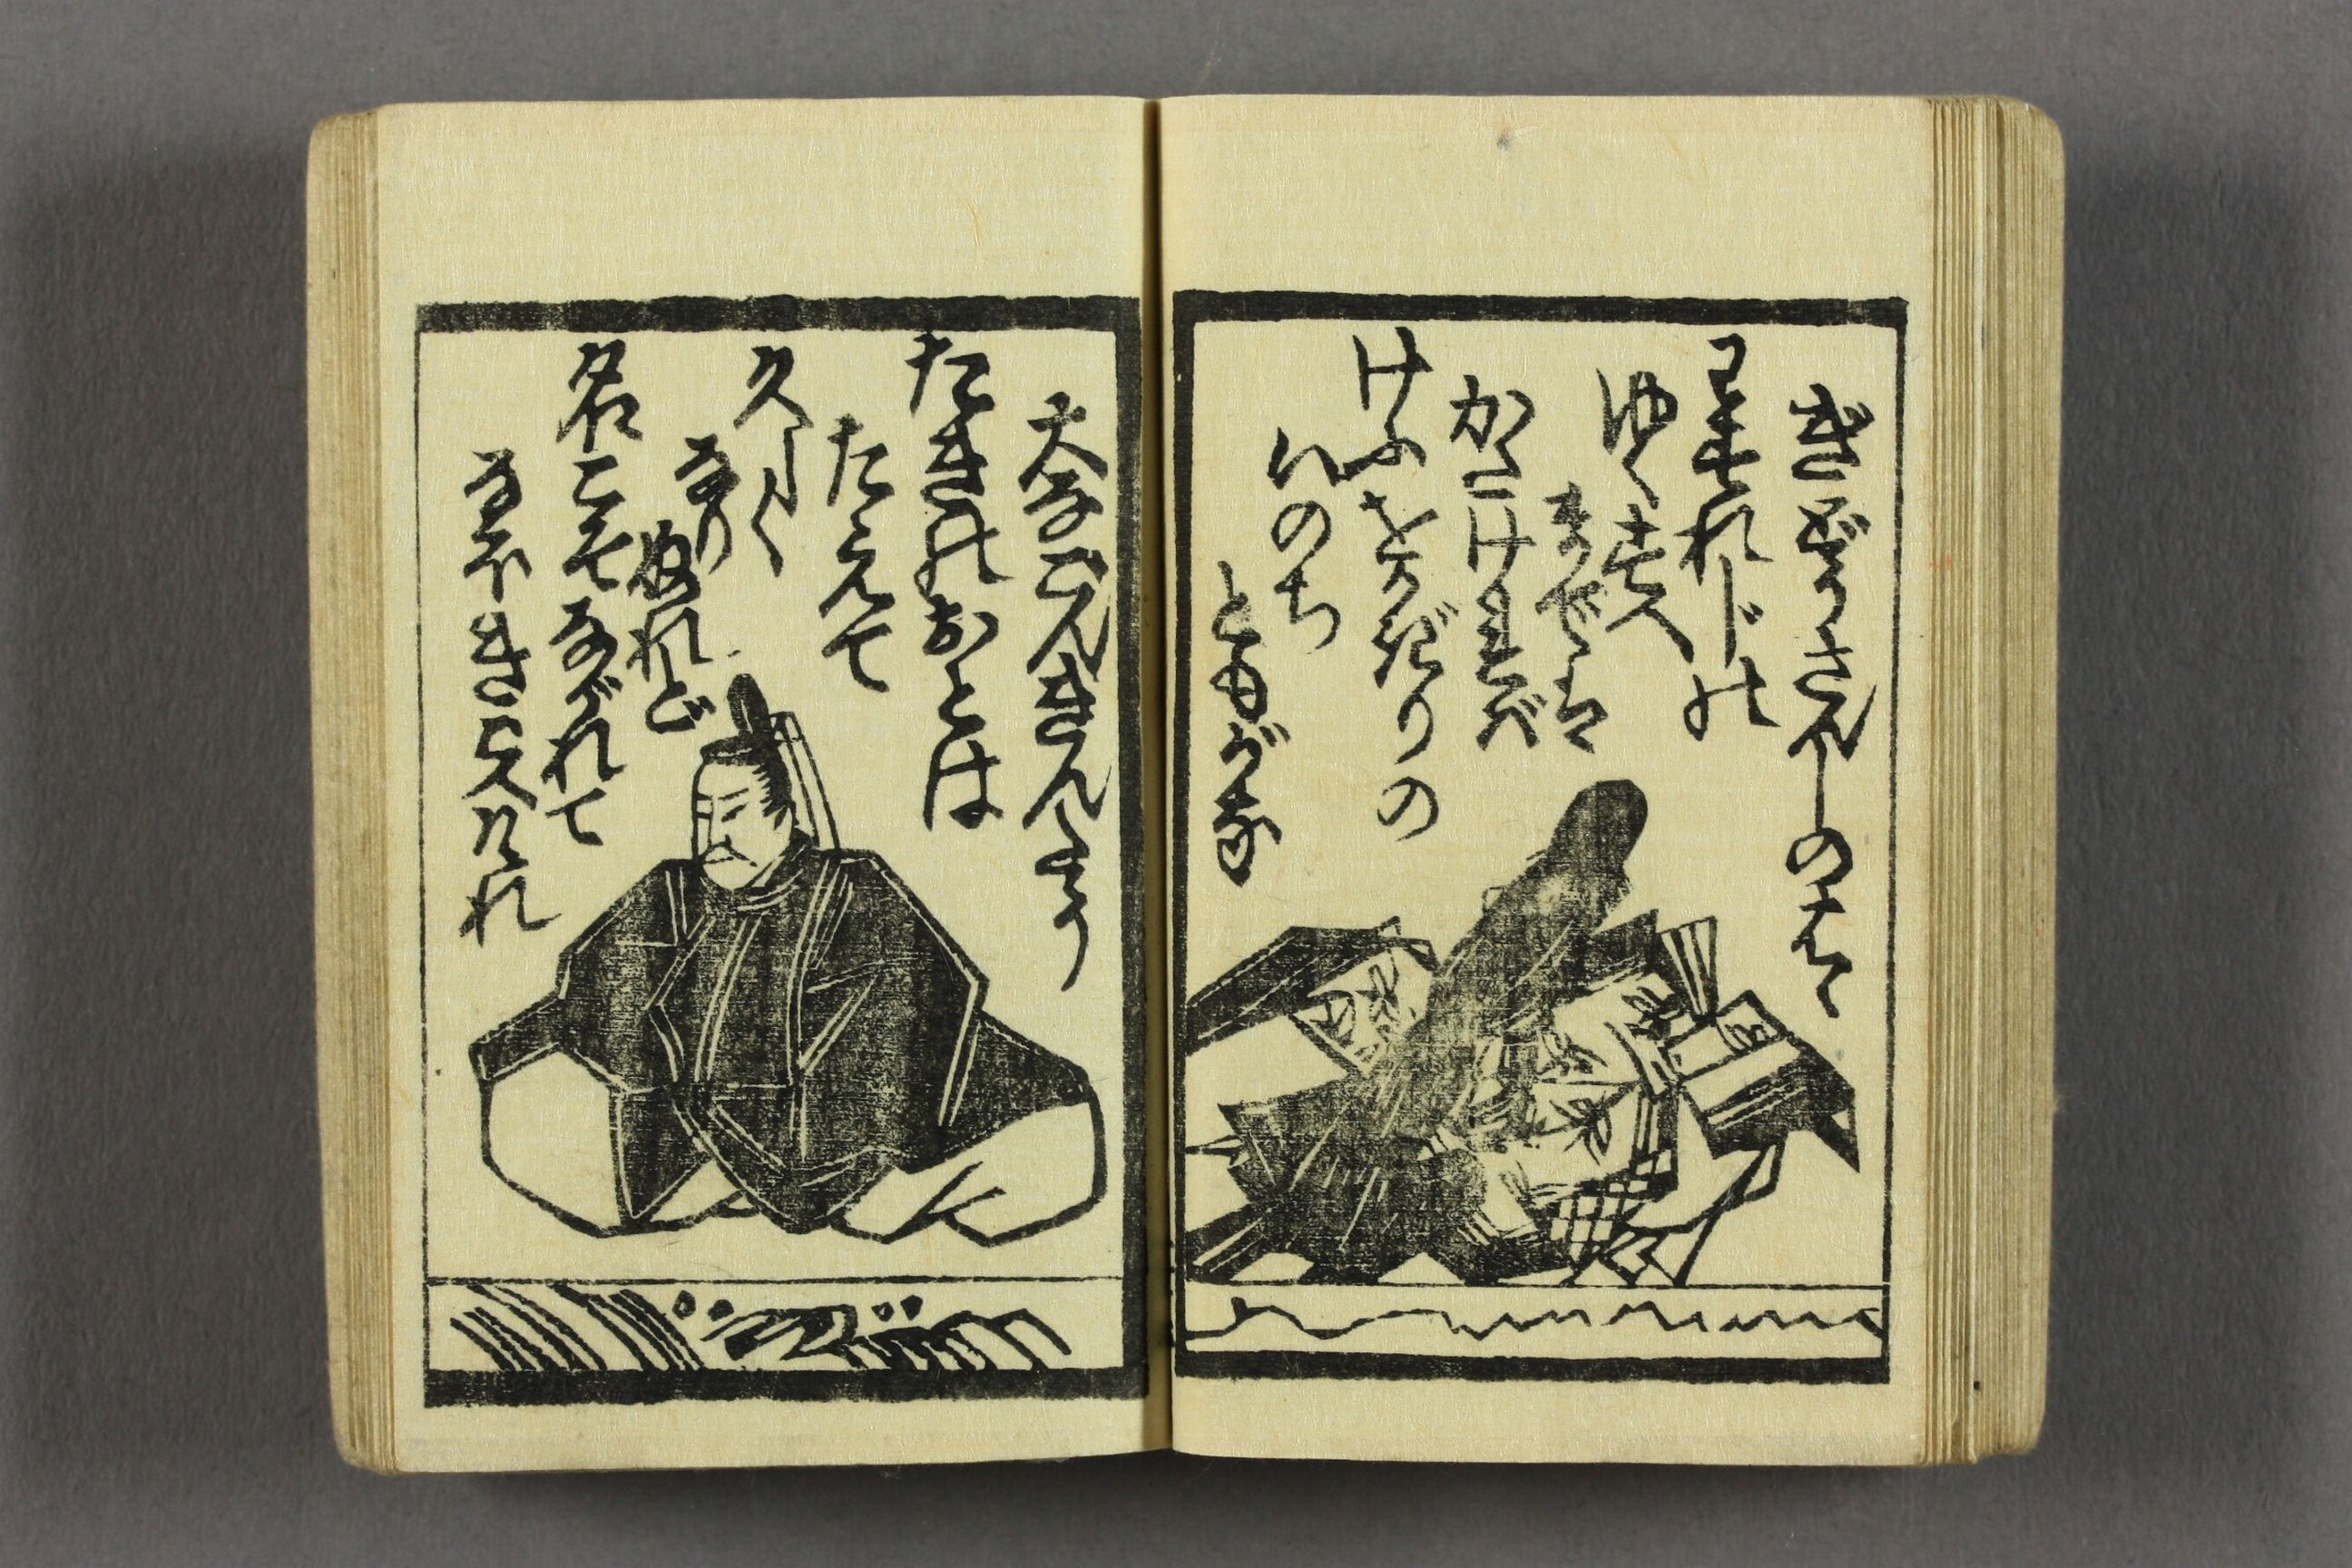 ぎどうさんしのはゝ
わすれじの
ゆくすへ
まではは
かたければ
けふをかぎりの
いのち
ともがな
大なごんきんとう
たきのおとは
たえて
久しく
なり
ぬれど
名こそながれて
なほきこえけれ